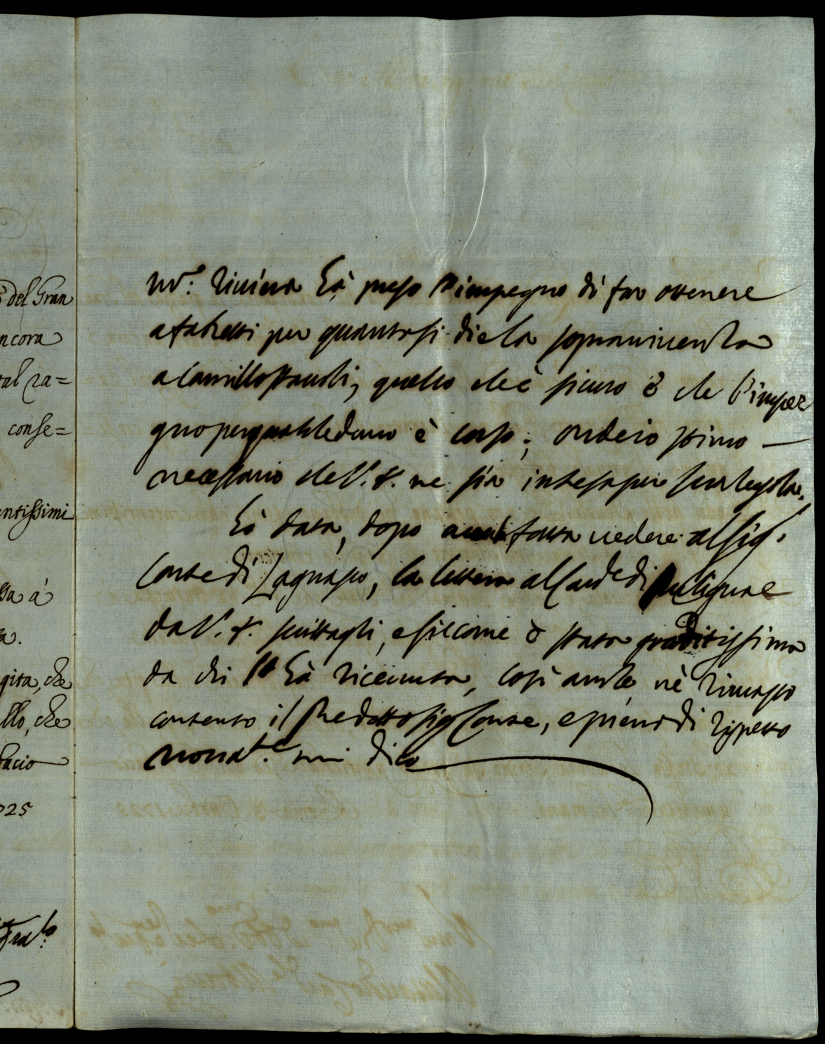 del Gran
ncora
tal ra=
conse=
ntissimi
sa à
a.
gita, che
llo, che
bacio
725
Mr. Riviera hà preso l'impegno di far ottenere
a fabretti per quanto si dice la sopravivenza
a Camillo Paoli; quello che è sicuro è che l'impe
gno per è corso; onde io stimo
necessario che V. S. ne sia intesa per sua regola.
Hò data, dopo fatta vedere al Sig.
Conte di Lagnasco, la lettera al Card. di
da V. S. e siccome è stata graditissima
da chi l'hà ricevuta, così anche n'è rimasto
contento il Predetto Sig. Conte, e pieno di rispetto
mi dico